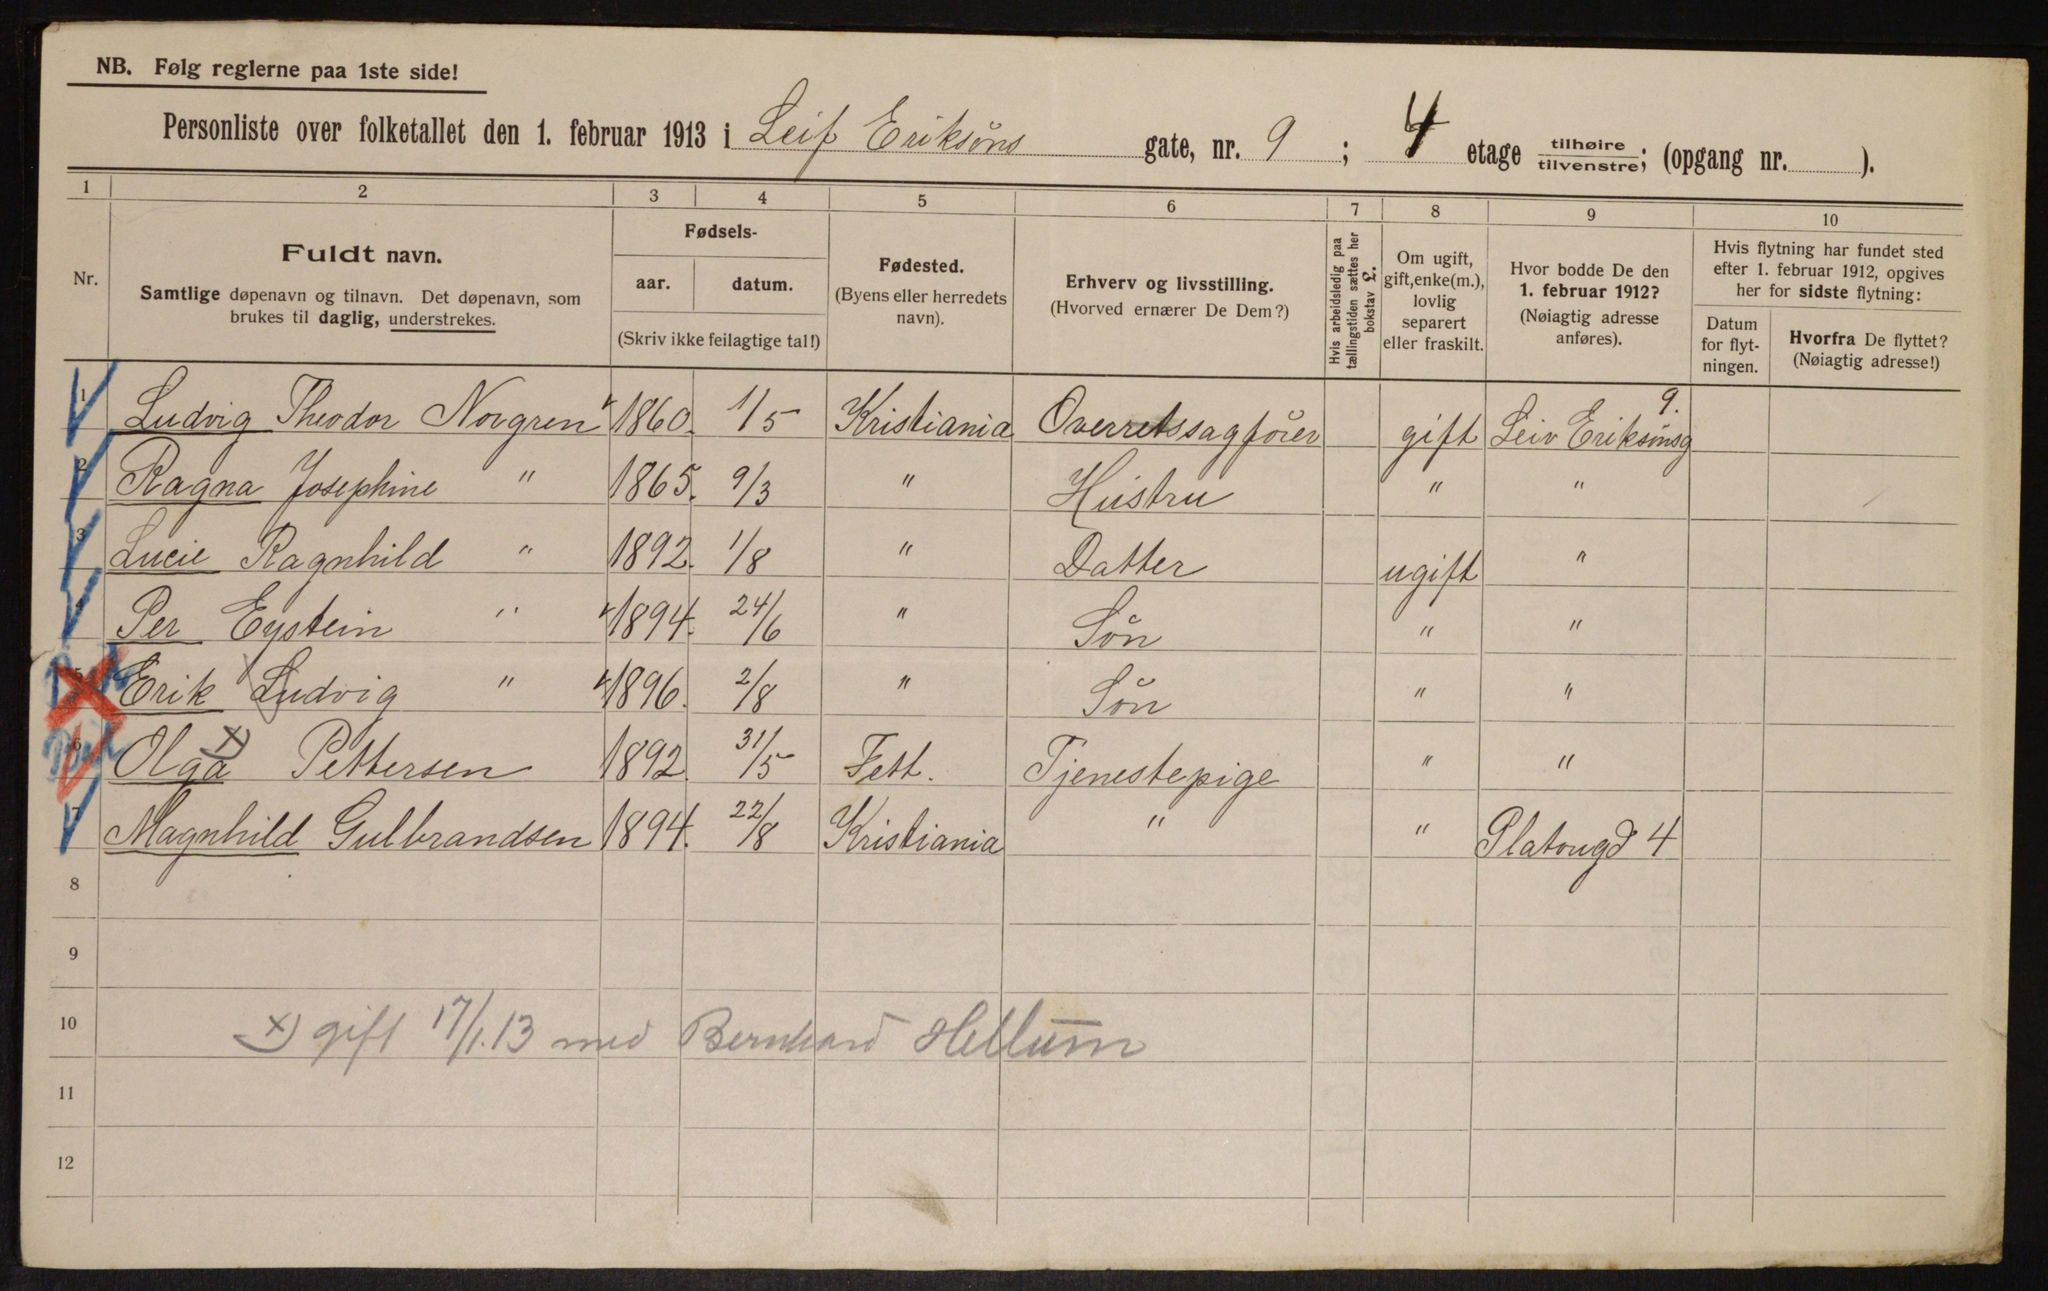 NB. Følg reglerne paa 1ste side!
Personliste over folketallet den 1. februar 1913 i Leif Eriksöns gate, nr. 9 ; 4 etage tilhøire/tilvenstre; (opgang nr. ).
1 2 3 4 5 6 7 8 9 10
Nr.
Fuldt navn.
Samtlige døpenavn og tilnavn. Det døpenavn, som
brukes til daglig, understrekes.
Fødsels-
aar. datum.
(Skriv ikke feilagtige tal!)
Fødested.
(Byens eller herredets
navn).
Erhverv og livsstilling.
(Hvorved ernærer De Dem?)
Hvis arbeidsledig paa
tællingstiden sættes her
bokstav £.
Om ugift,
gift, enke(m.),
lovlig
separert
eller fraskilt.
Hvor bodde De den
1. februar 1912?
(Nøiagtig adresse
anføres).
Hvis flytning har fundet sted
efter 1. februar 1912, opgives
her for sidste flytning:
Datum
for flyt-
ningen.
Hvorfra De flyttet?
(Nøiagtig adresse!)
1 Ludvig Theodor Norgren 1860. 1/5 Kristiania Overretssagförer gift Leiv Eriksönsg 9.
2 Ragna Josephine " 1865. 9/3 " Hustru " "
3 Lucie Ragnhild " 1892. 1/8 " Datter ugift "
4 Per Eystein " 1894. 24/6 " Sön " "
5 Erik Ludvig " 1896. 2/8 " Sön " "
6 Olga x) Pettersen 1892. 31/5 Fett. Tjenestepige " "
7 Magnhild Gulbrandsen 1894. 22/8 Kristiania " " Platougd 4
8
9
10 x) gift 17/1.13 med Bernhard Hellum
11
12